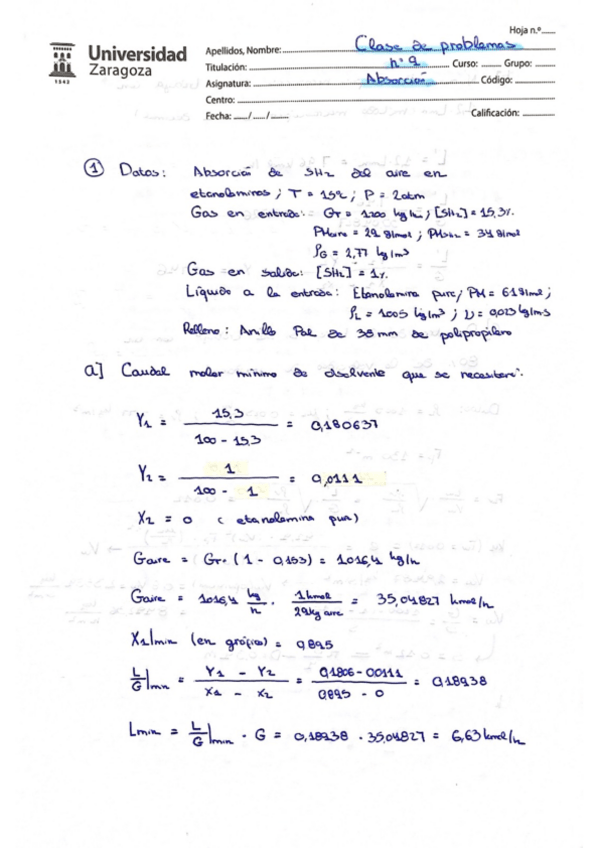 Hoja n.º
Universidad Zaragoza
1542
Apellidos, Nombre: Clase de problemas
Titulación: nº 9 Curso: Grupo:
Asignatura: Absorción Código:
Centro:
Fecha: / / Calificación:
① Datos: Absorción de SH2 del aire en
etanolaminas; T = 15ºC; P = 2atm
Gas en entrada: GT = 1200 kg/h; [SH2] = 15,3%
PMaire = 29 g/mol; PMSH2 = 34 g/mol
ρG = 2,77 kg/m³
Gas en salida: [SH2] = 1%
Líquido a la entrada: Etanolamina pura; PM = 61 g/mol;
ρL = 1005 kg/m³; υ = 0,023 kg/m·s
Relleno: Anillo Pall de 38 mm de polipropileno
a] Caudal molar mínimo de disolvente que se necesitaría:
Y1 = 15,3 / (100 - 15,3) = 0,180637
Y2 = 1 / (100 - 1) = 0,0111
X2 = 0 (etanolamina pura)
Gaire = GT · (1 - 0,153) = 1016,4 kg/h
Gaire = 1016,4 kg/h · 1 kmol / 29 kg aire = 35,04827 kmol/h
X1|min (en gráfica) = 0,895
L/G|min = (Y1 - Y2) / (X1 - X2) = (0,1806 - 0,0111) / (0,895 - 0) = 0,18938
Lmin = L/G|min · G = 0,18938 · 35,04827 = 6,63 kmol/h